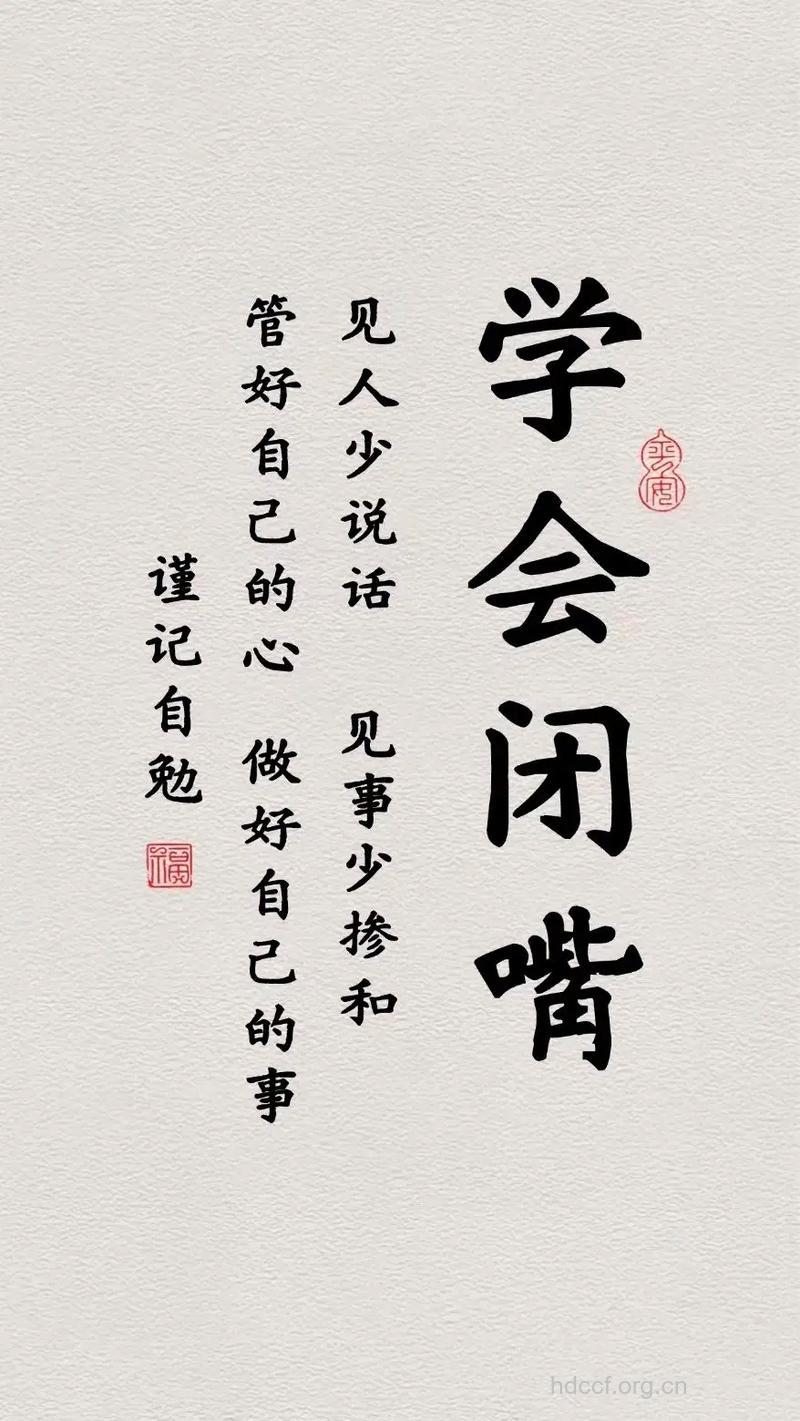 学会闭嘴
平安
见人少说话 见事少掺和
管好自己的心 做好自己的事
谨记自勉
福
hdccf.org.cn